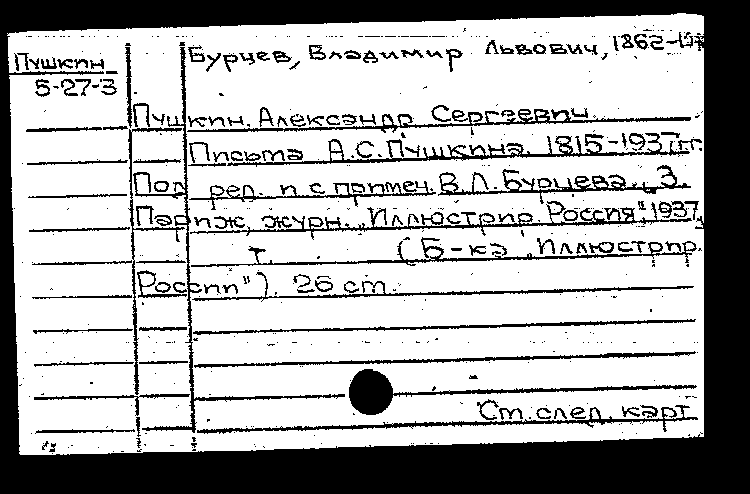 Бурцев, Владимир Львович, 1862-
Пушкин
5-27-3
Пушкин, Александр Сергеевич
Письма А.С. Пушкина. 1815-1937 гг.
Под ред. и с примеч. В.Л. Бурцева. 3.
Париж, журн. „Иллюстрир. Россия", 1937,
т. (Б-ка „Иллюстрир.
России"). 26 см.
См. след. карт